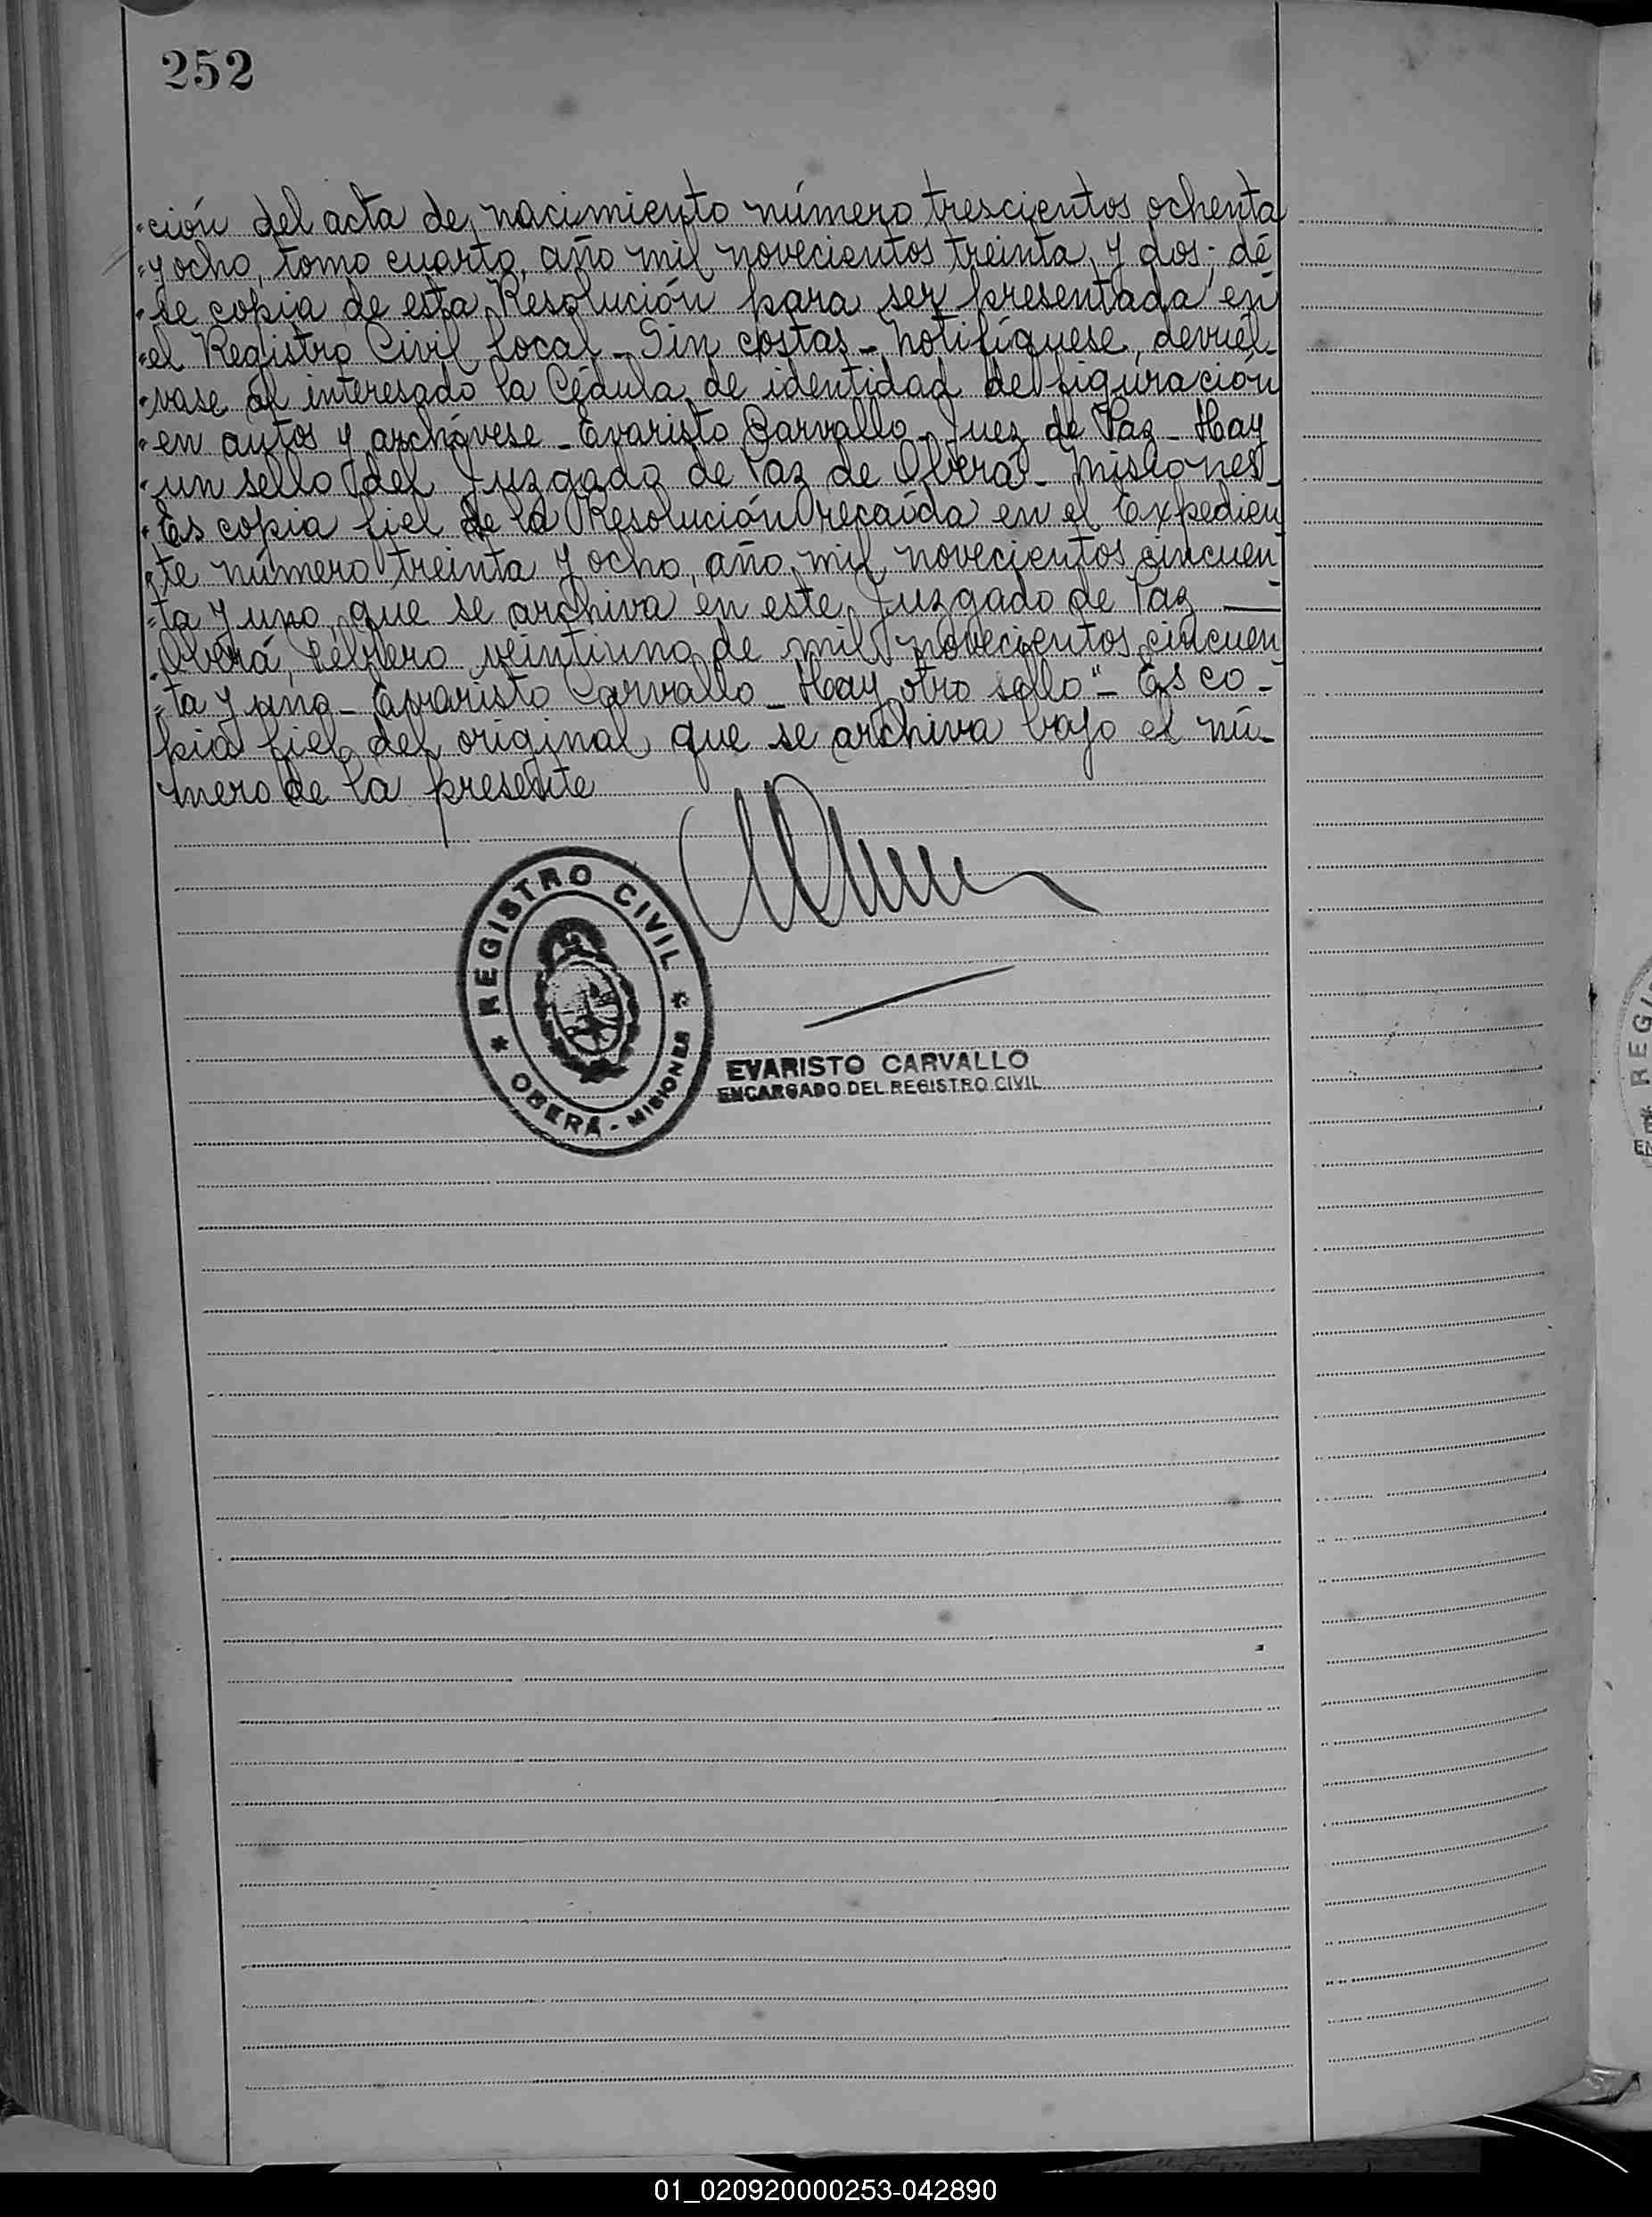 252
"ción del acta de nacimiento número trescientos ochenta
"y ocho, tomo cuarto, año mil novecientos treinta y dos; dé-
"se copia de esta Resolución para ser presentada en
"el Registro Civil local_ Sin costas_ Notifíquese, devuél-
"vase al interesado la Cédula de identidad de figuración
"en autos y archívese_ Evaristo Carvallo_ Juez de Paz_ Hay
"un sello del Juzgado de Paz de Oberá_ Misiones_
"Es copia fiel de la Resolución recaída en el Expedien
"te número treinta y ocho, año mil novecientos cincuen-
"ta y uno, que se archiva en este Juzgado de Paz ——
"Oberá, Febrero veintiuno de mil novecientos cincuen-
"ta y uno_ Evaristo Carvallo_ Hay otro sello"_ Es co-
pia fiel del original que se archiva bajo el nú-
mero de la presente
REGISTRO CIVIL
* OBERÁ - MISIONES *
EVARISTO CARVALLO
ENCARGADO DEL REGISTRO CIVIL
01_020920000253-042890